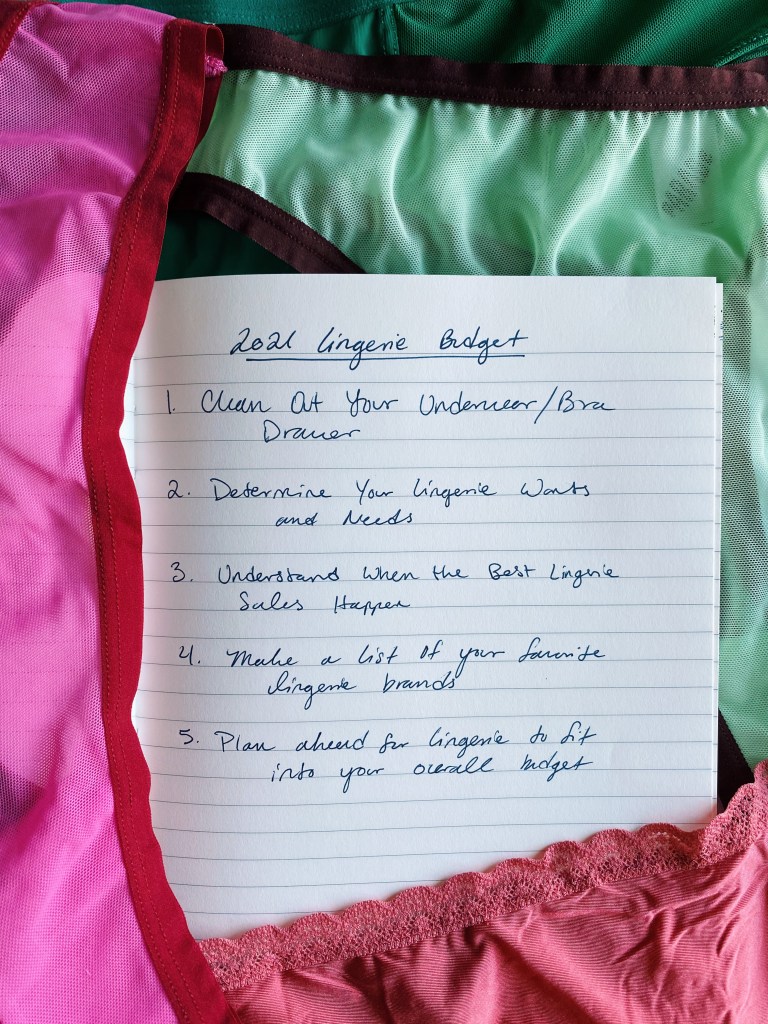 2021 Lingerie Budget
1. Clean Out Your Underwear/Bra
Drawer
2. Determine Your Lingerie Wants
and Needs
3. Understand When the Best Lingerie
Sales Happen
4. Make a list of your favorite
lingerie brands
5. Plan ahead for lingerie to fit
into your overall budget